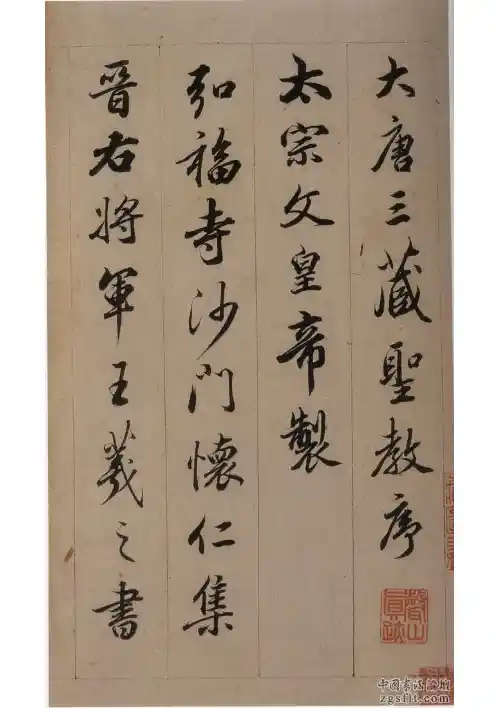 大唐三藏聖教序
太宗文皇帝製
弘福寺沙門懷仁集
晉右將軍王羲之書
中国书法论坛
zgsflt.com